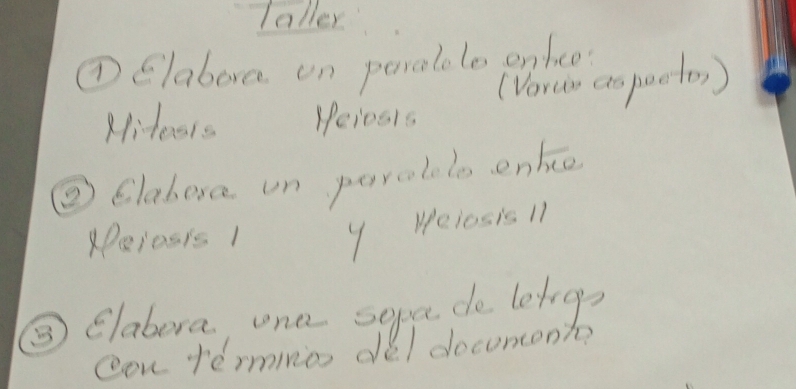 Taller
① Elabora un paralelo entre:
(Varios aspectos)
Mitosis Meiosis
② Elabora un paralelo entre
Meiosis I y Meiosis II
③ Elabora una sopa de letras
con términos del documento